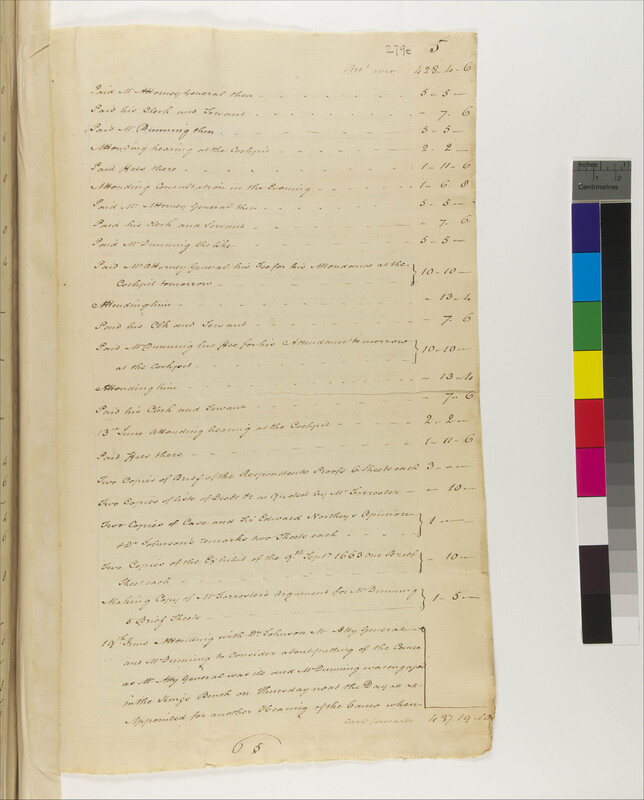 279c 5
Bro.t over 428-4-6
Paid Mr Attorney General then - 5-5-
Paid his Clerk and Servant - -7-6
Paid Mr Dunning then - 5-5-
Attending hearing at the Cockpit - 2-2-
Paid Fees there - 1-11-6
Attending Consultation in the Evening - 1-6-8
Paid Mr Attorney General then - 5-5-
Paid his Clerk and Servant - -7-6
Paid Mr Dunning the like - 5-5-
Paid Mr Attorney General his Fee for his Attendance at the
Cockpit tomorrow } 10-10-
Attending him - -13-4
Paid his Clk and Servant - -7-6
Paid Mr Dunning his Fee for his Attendance tomorrow
at the Cockpit } 10-10-
Attending him - -13-4
Paid his Clerk and Servant - -7-6
13th June Attending hearing at the Cockpit - 2-2-
Paid Fees there - 1-11-6
Two Copies of Brief of the Respondents Proofs 6 Sheets each 3-"-
Two Copies of Lists of Deeds &c as Quoted by Mr Forrester - -10-
Two Copies of Case and Sir Edward Northeys Opinion
& Dr Johnson's remarks two Sheets each } 1-
Two Copies of the Exhibit of the 9th Septr 1663 one Brief
Sheet each } -10-
Making Copy of Mr Forrester's Argument for Mr Dunning
5 Brief Sheets } 1-5-
19th June Attending with Dr Johnson Mr Atty General
and Mr Dunning to Consider about putting of the Cause
as Mr Atty General was ill and Mr Dunning was engaged
in the Kings Bench on Thursday next the Day
Appointed for another Hearing of the Cause when
Card forwards 487-19-10
5